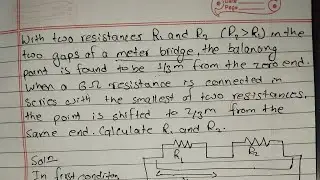 Date
Page
With two resistances R₁ and R₂ (R₂>R₁) in the
two gaps of a meter bridge, the balancing
point is found to be 1/3 m from the zero end.
When a 6Ω resistance is connected in
series with the smallest of two resistances,
the point is shifted to 2/3 m from the
same end. Calculate R₁ and R₂.
Solⁿ
In first condition
R₁ R₂